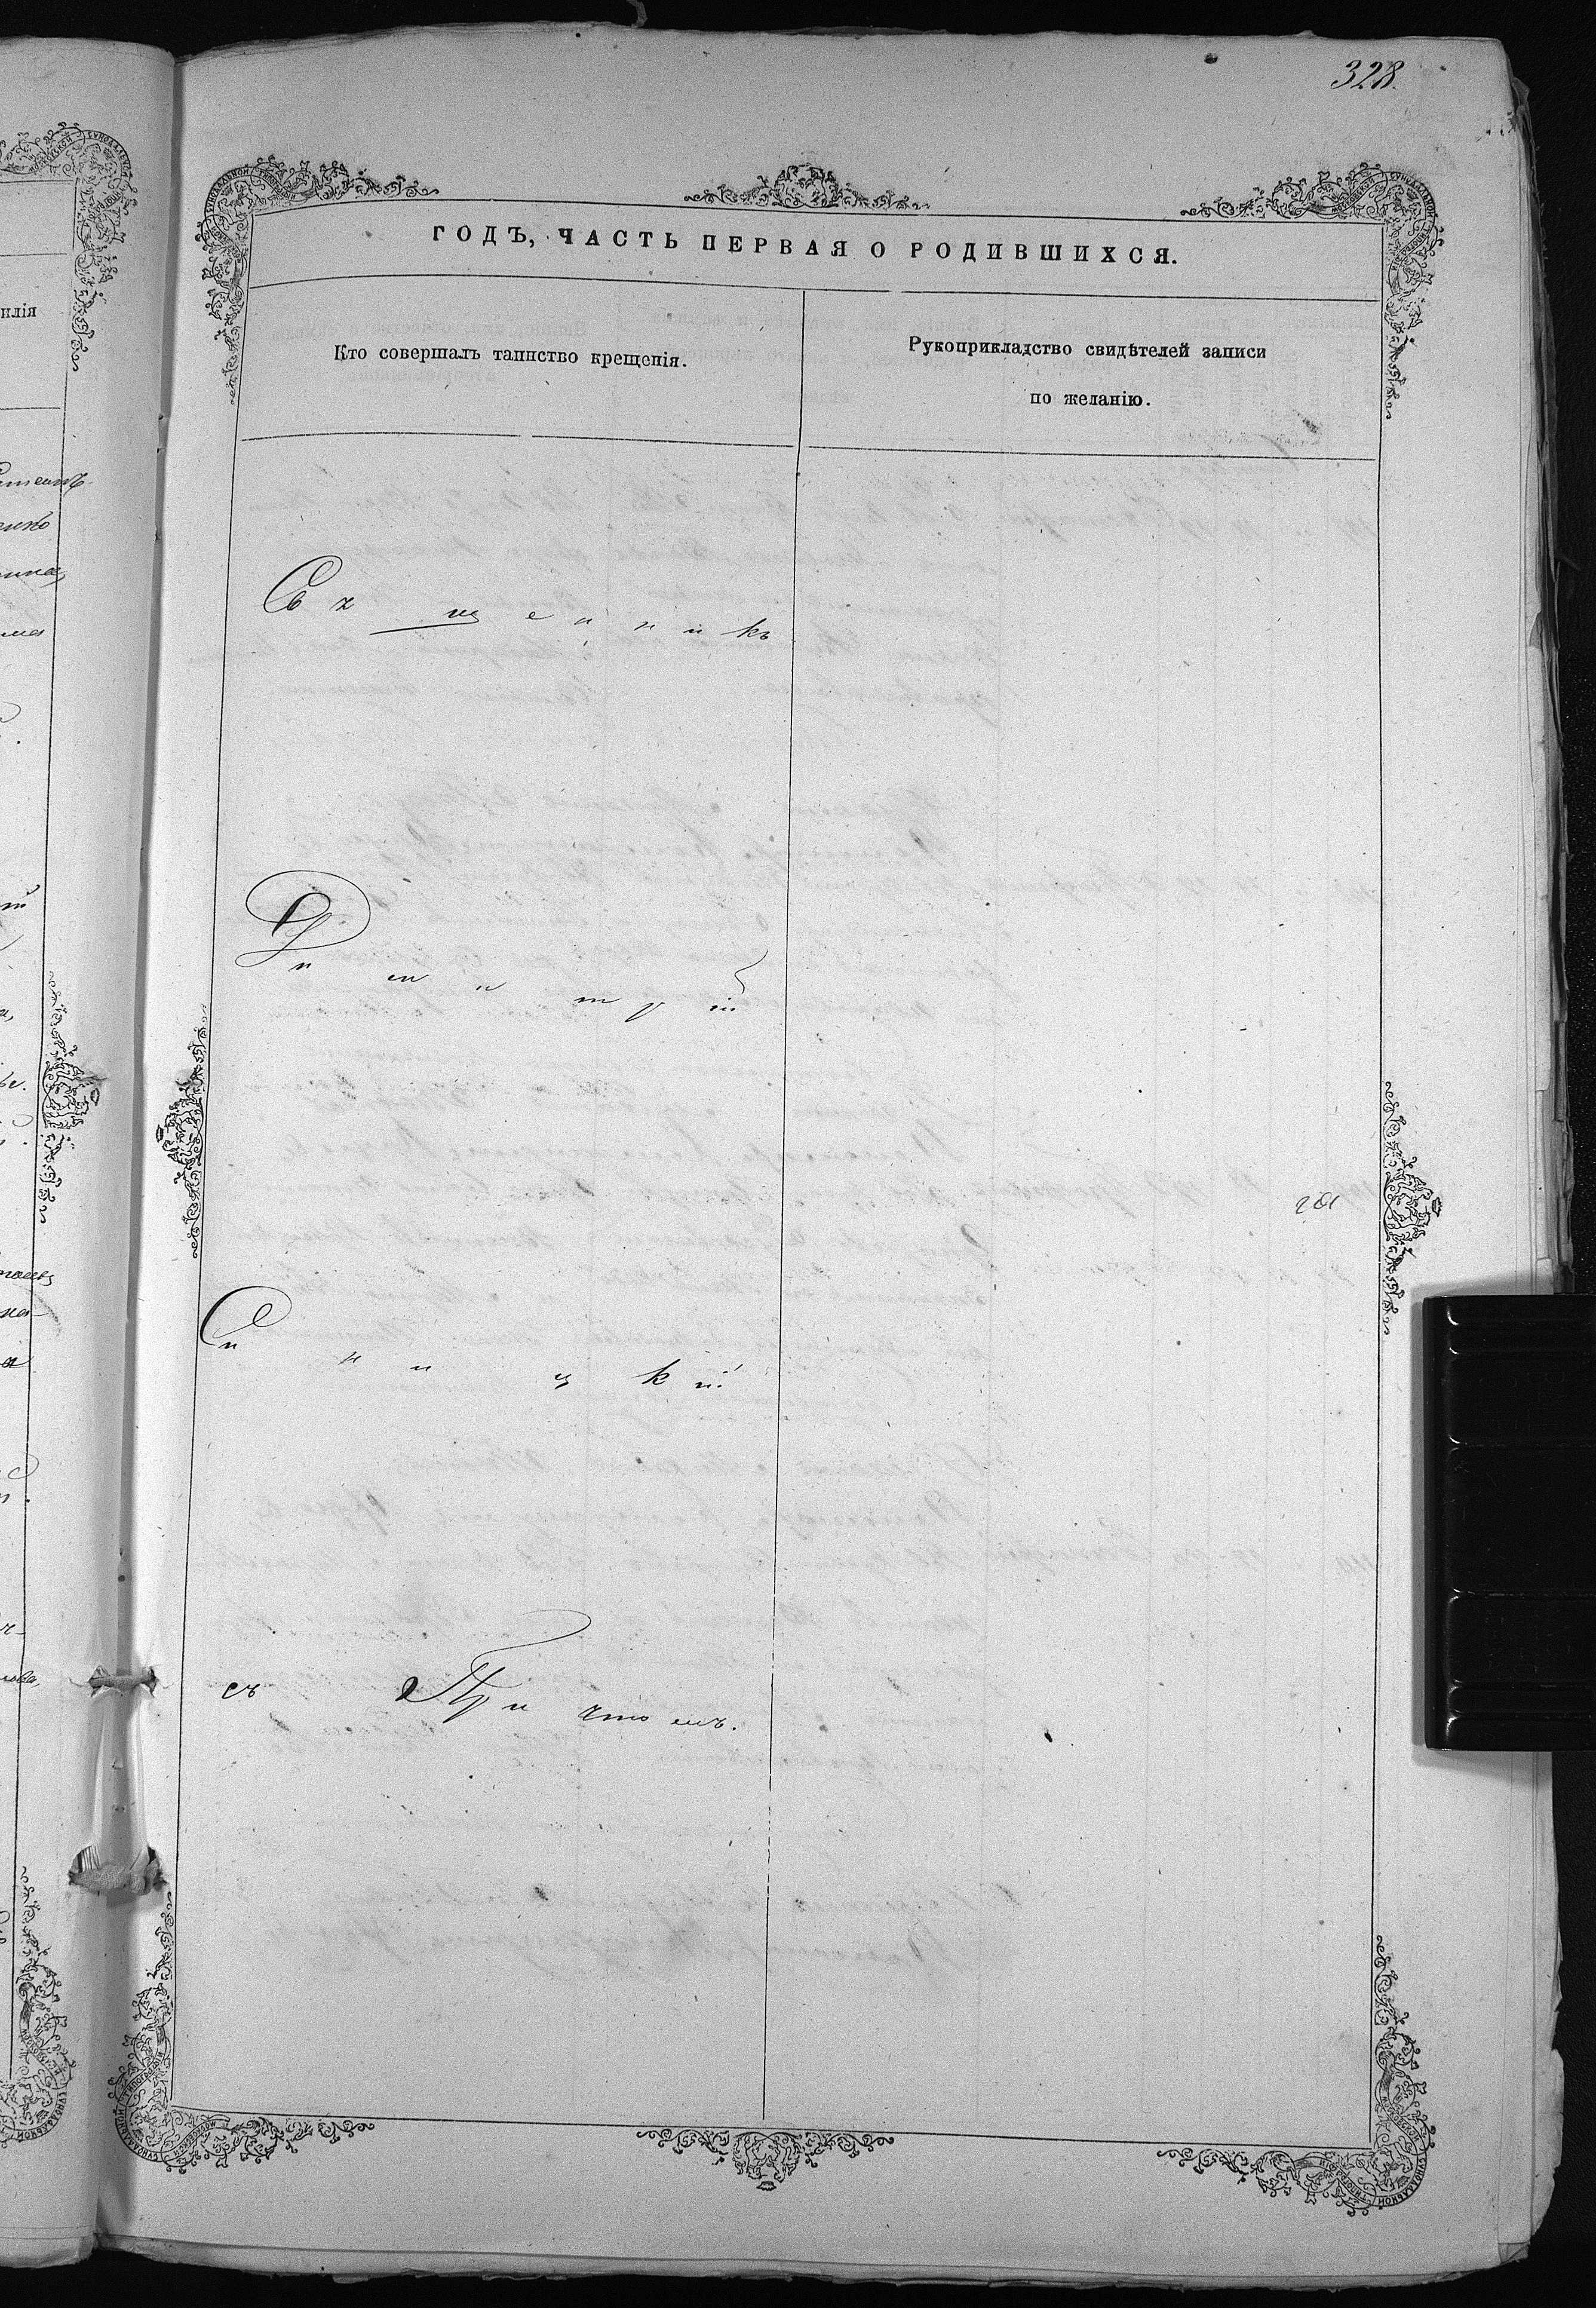 328.
ГОДЪ, ЧАСТЬ ПЕРВАЯ О РОДИВШИХСЯ.
Кто совершалъ таинство крещенія.
Рукоприкладство свидѣтелей записи
по желанію.
Священникъ
Димитрій
Синицкій
съ Причтомъ.